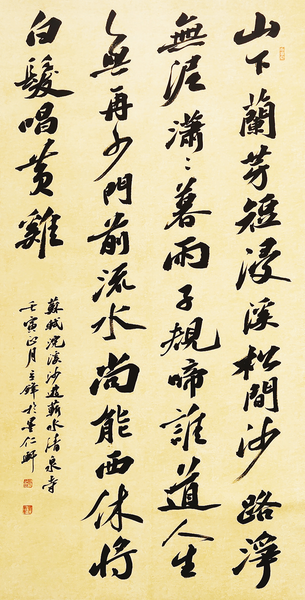 山下蘭芽短浸溪松間沙路淨
無泥瀟々暮雨子規啼誰道人生
無再少門前流水尚能西休將
白髮唱黃雞
蘇軾浣溪沙遊蘄水清泉寺
壬寅正月立鋒於墨仁軒